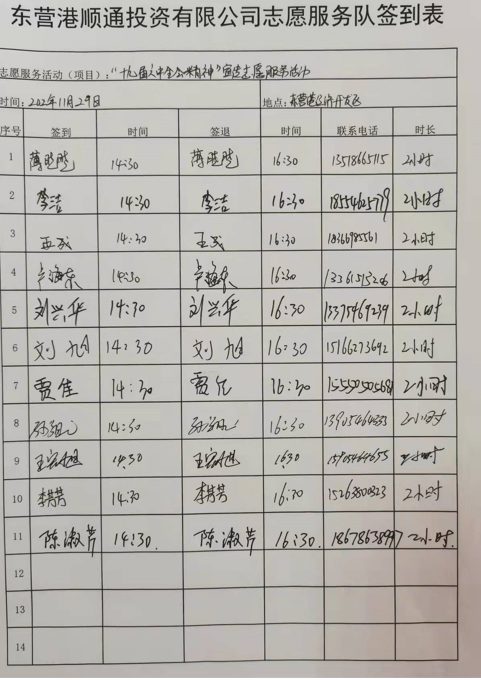 东营港顺通投资有限公司志愿服务队签到表
志愿服务活动（项目）：“十九届六中全会精神”宣志愿服务活动
时间：2021年11月29日 地点：东营港经济开发区
序号 签到 时间 签退 时间 联系电话 时长
1 薄 14:30 薄 16:30 13518665115 2小时
2 李洁 14:30 李洁 16:30 2小时
3 14:30 王 16:30 2小时
4 卢海东 14:30 卢海东 16:30 2小时
5 刘兴华 14:30 刘兴华 16:30 13375469239 2小时
6 刘旭 14:30 刘旭 16:30 15166273692 2小时
7 贾佳 14:30 贾佳 16:30 2小时
8 14:30 16:30 2小时
9 王 14:30 王 16:30 2小时
10 李 14:30 李 16:30 2小时
11 陈淑芹 14:30 陈淑芹 16:30 2小时
12
13
14